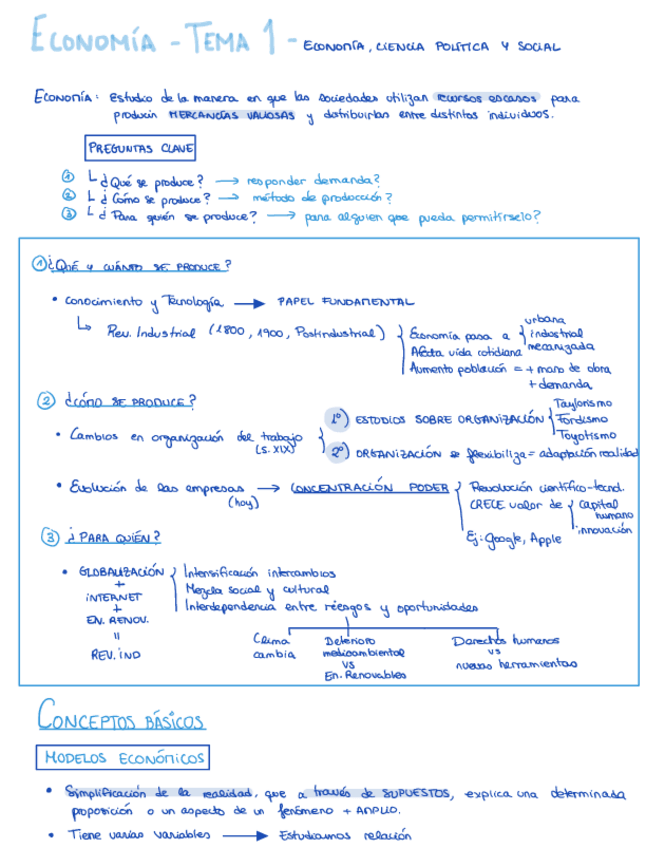 ECONOMÍA - TEMA 1 - ECONOMÍA, CIENCIA POLÍTICA Y SOCIAL
ECONOMÍA: Estudio de la manera en que las sociedades utilizan recursos escasos para
producir MERCANCÍAS VALIOSAS y distribuirlas entre distintos individuos.
PREGUNTAS CLAVE
① ↳ ¿Qué se produce? → responder demanda?
② ↳ ¿Cómo se produce? → método de producción?
③ ↳ ¿Para quién se produce? → para alguien que pueda permitírselo?
① ¿QUÉ Y CUÁNTO SE PRODUCE?
• Conocimiento y Tecnología → PAPEL FUNDAMENTAL
↳ Rev. Industrial (1800, 1900, Postindustrial) { Economía pasa a { urbana
industrial
mecanizada
Afecta vida cotidiana
Aumento población = + mano de obra
+ demanda
② ¿CÓMO SE PRODUCE?
• Cambios en organización del trabajo
(S. XIX)
1º) ESTUDIOS SOBRE ORGANIZACIÓN { Taylorismo
Fordismo
Toyotismo
2º) ORGANIZACIÓN se flexibiliza = adaptación realidad
• Evolución de las empresas → CONCENTRACIÓN PODER { Revolución científico-tecnol.
(hoy)
CRECE valor de { capital
humano
innovación
Ej: Google, Apple
③ ¿PARA QUIÉN?
• GLOBALIZACIÓN { Intensificación intercambios
+
INTERNET
Mezcla social y cultural
+
Interdependencia entre riesgos y oportunidades
EN. RENOV.
=
REV. IND
Clima
cambia
Deterioro
medioambiental
vs
En. Renovables
Derechos humanos
vs
nuevas herramientas
CONCEPTOS BÁSICOS
MODELOS ECONÓMICOS
• Simplificación de la realidad, que a través de SUPUESTOS, explica una determinada
proposición o un aspecto de un fenómeno + AMPLIO.
• Tiene varias variables → Estudiamos relación